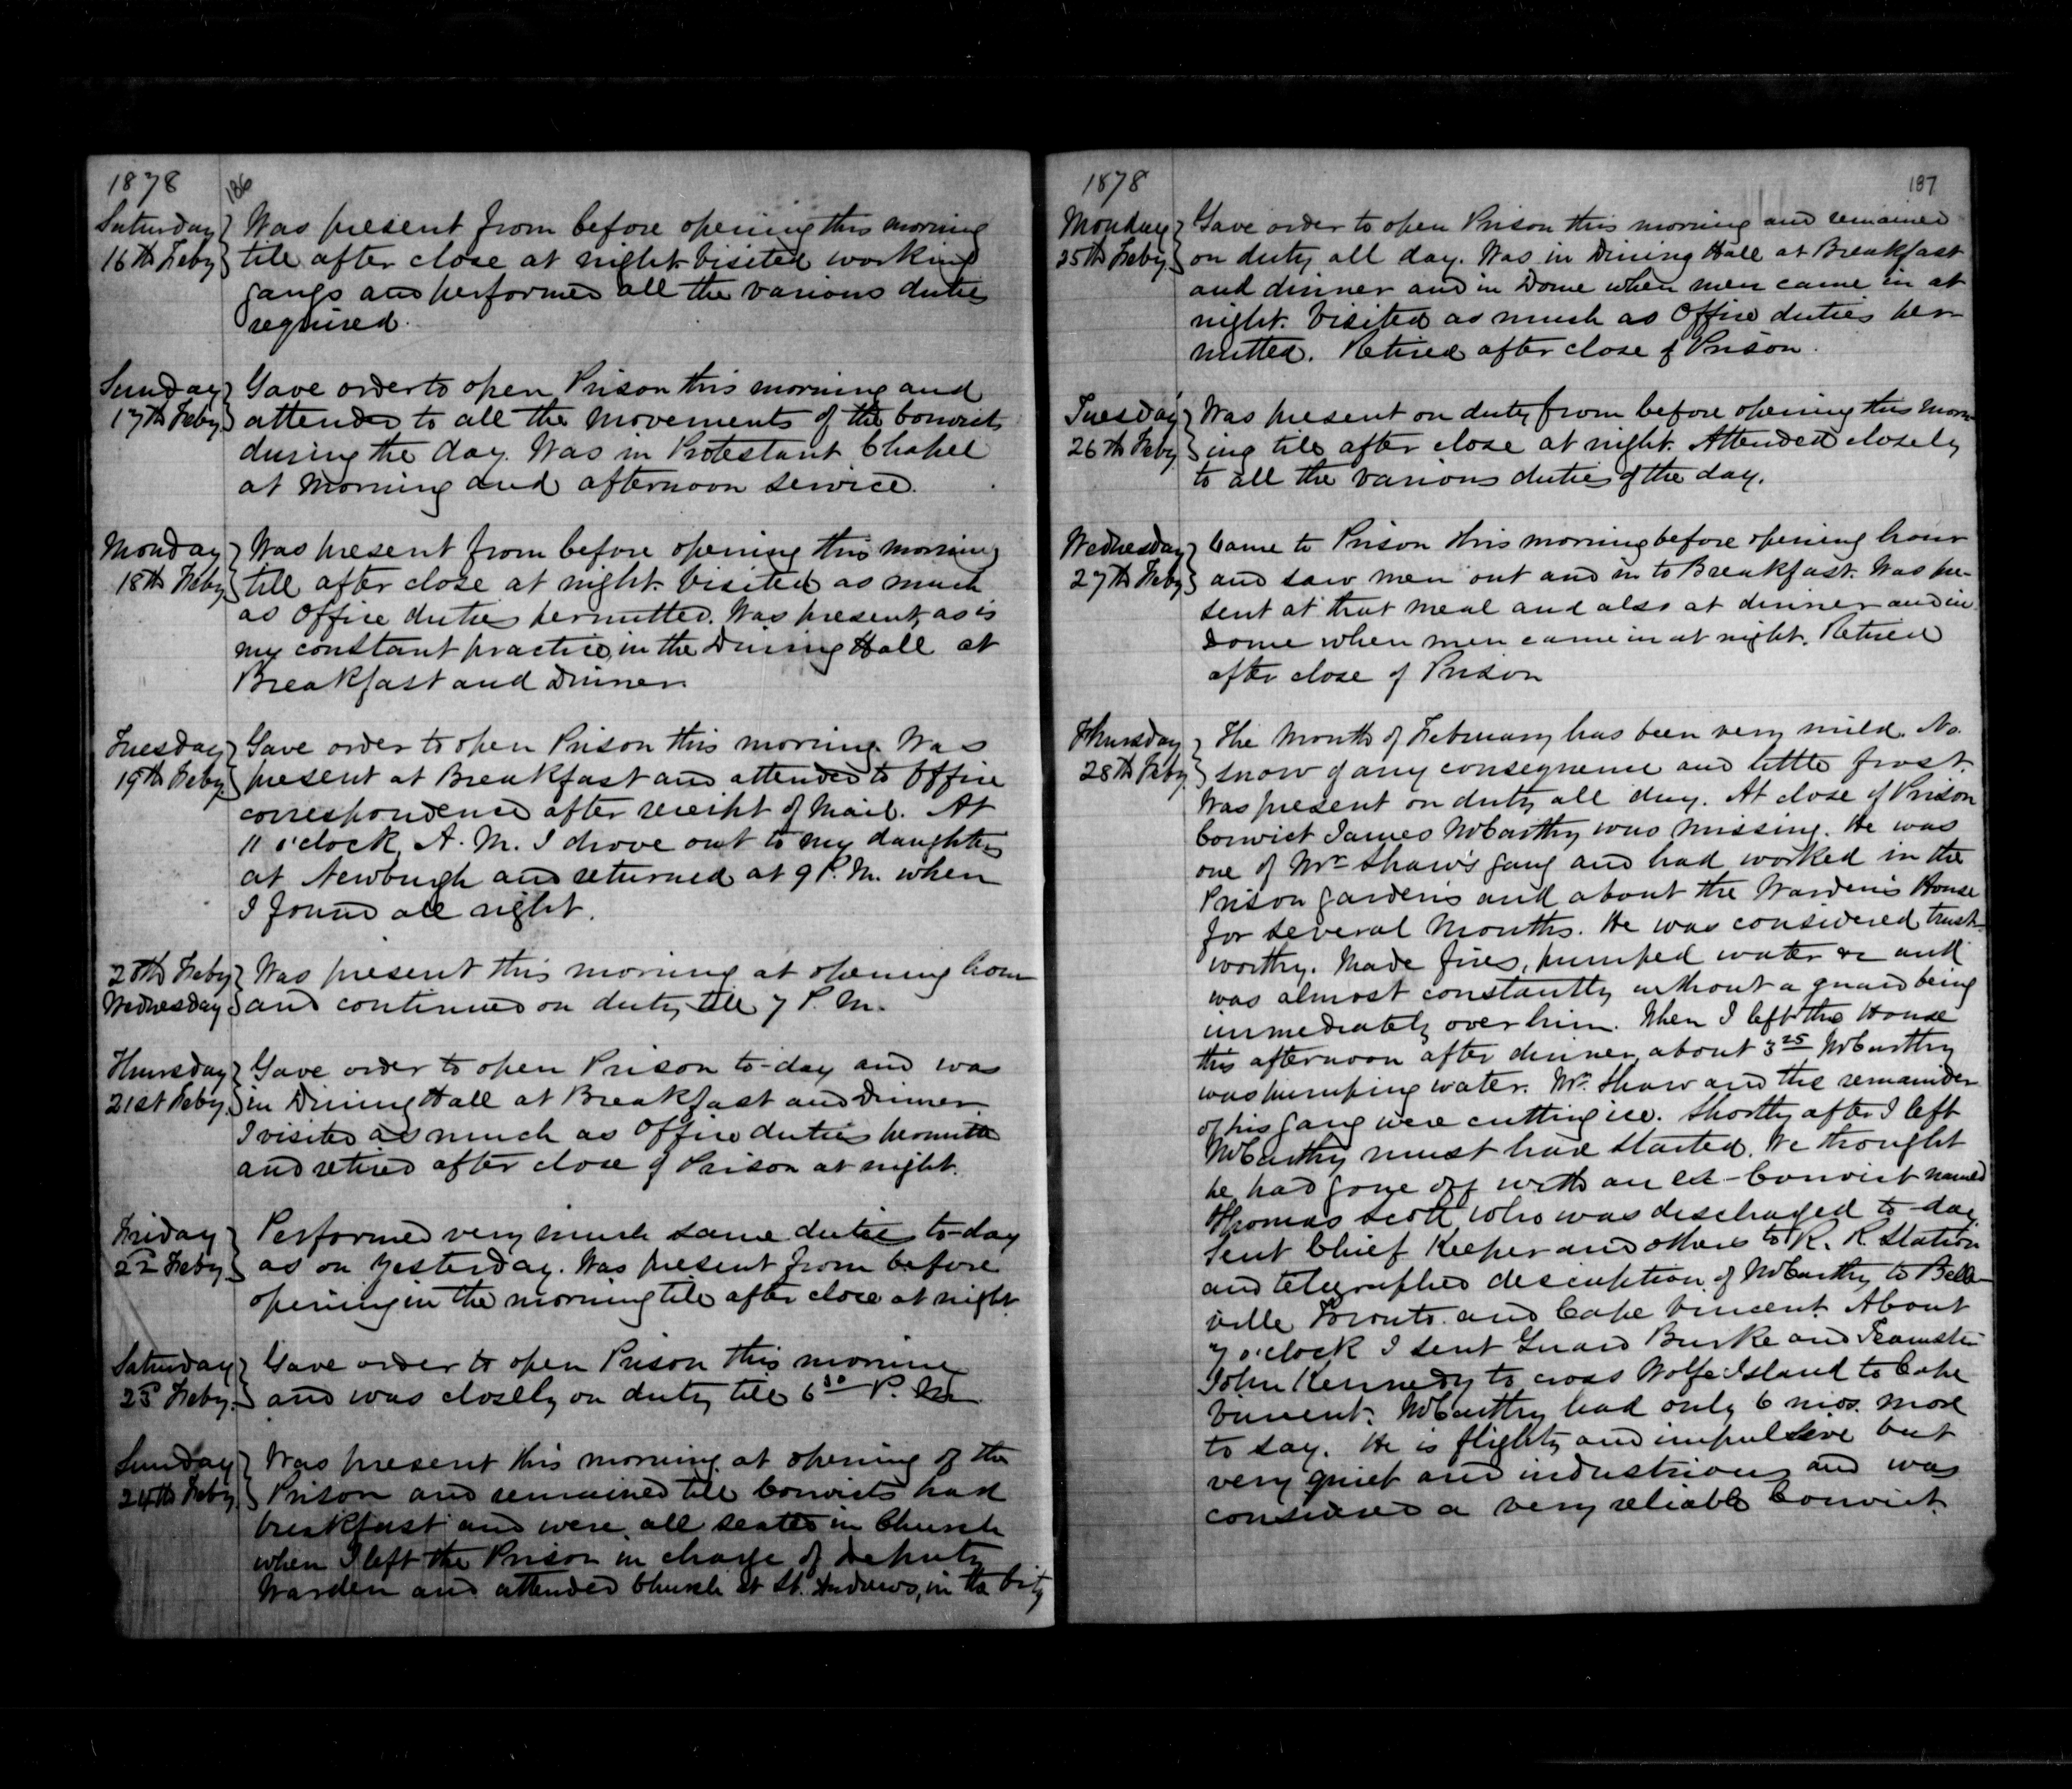 1878
186
Saturday } Was present from before opening this morning
16th Feby } till after close at night. Visited working
gangs and performed all the various duties
required.
Sunday } Gave order to open Prison this morning and
17th Feby } attended to all the movements of the Convicts
during the day. Was in Protestant Chapel
at morning and afternoon service.
Monday } Was present from before opening this morning
18th Feby } till after close at night. Visited as much
as Office duties permitted. Was present, as is
my constant practice, in the Dining Hall at
Breakfast and Dinner.
Tuesday } Gave order to open Prison this morning. Was
19th Feby } present at Breakfast and attended to Office
correspondence after receipt of Mail. At
11 o'clock A. M. I drove out to my daughters
at Newburgh and returned at 9 P. M. when
I found all right.
20th Feby } Was present this morning at opening hour
Wednesday } and continued on duty till 7 P. M.
Thursday } Gave order to open Prison to-day and was
21st Feby } in Dining Hall at Breakfast and Dinner.
I visited as much as Office duties permitted
and retired after close of Prison at night.
Friday } Performed very much same duties to-day
22d Feby } as on yesterday. Was present from before
opening in the morning till after close at night.
Saturday } Gave order to open Prison this morning
23d Feby } and was closely on duty till 6 30 P. M.
Sunday } Was present this morning at opening of the
24th Feby } Prison and remained till Convicts had
breakfast and were all seated in Church
when I left the Prison in charge of Deputy
Warden and attended Church at St. Andrews, in the City
1878
187
Monday } Gave order to open Prison this morning and remained
25th Feby } on duty all day. Was in Dining Hall at Breakfast
and dinner and in Dome when men came in at
night. Visited as much as Office duties per-
mitted. Retired after close of Prison.
Tuesday } Was present on duty from before opening this morn-
26th Feby } ing till after close at night. Attended closely
to all the various duties of the day.
Wednesday } Came to Prison this morning before opening hour
27th Feby } and saw men out and in to Breakfast. Was pre-
sent at that meal and also at dinner and in
Dome when men came in at night. Retired
after close of Prison
Thursday } The Month of February has been very mild. No
28th Feby } snow of any consequence and little frost.
Was present on duty all day. At close of Prison
Convict James McCarthy was missing. He was
one of Mr Shaw's gang and had worked in the
Prison gardens and about the Warden's House
for several months. He was considered trust-
worthy. Made fires, pumped water &c and
was almost constantly without a guard being
immediately over him. When I left the House
this afternoon after dinner, about 3 25 McCarthy
was pumping water. Mr. Shaw and the remainder
of his gang were cutting ice. Shortly after I left
McCarthy must have started. We thought
he had gone off with an ex-Convict named
Thomas Scott who was discharged to-day.
Sent Chief Keeper and others to R. R. Station
and telegraphed description of McCarthy to Belle-
ville Toronto and Cape Vincent. About
7 o'clock I sent Guard Burke and Teamster
John Kennedy to cross Wolfe Island to Cape
Vincent. McCarthy had only 6 mos. more
to stay. He is flighty and impulsive but
very quiet and industrious and was
considered a very reliable Convict.